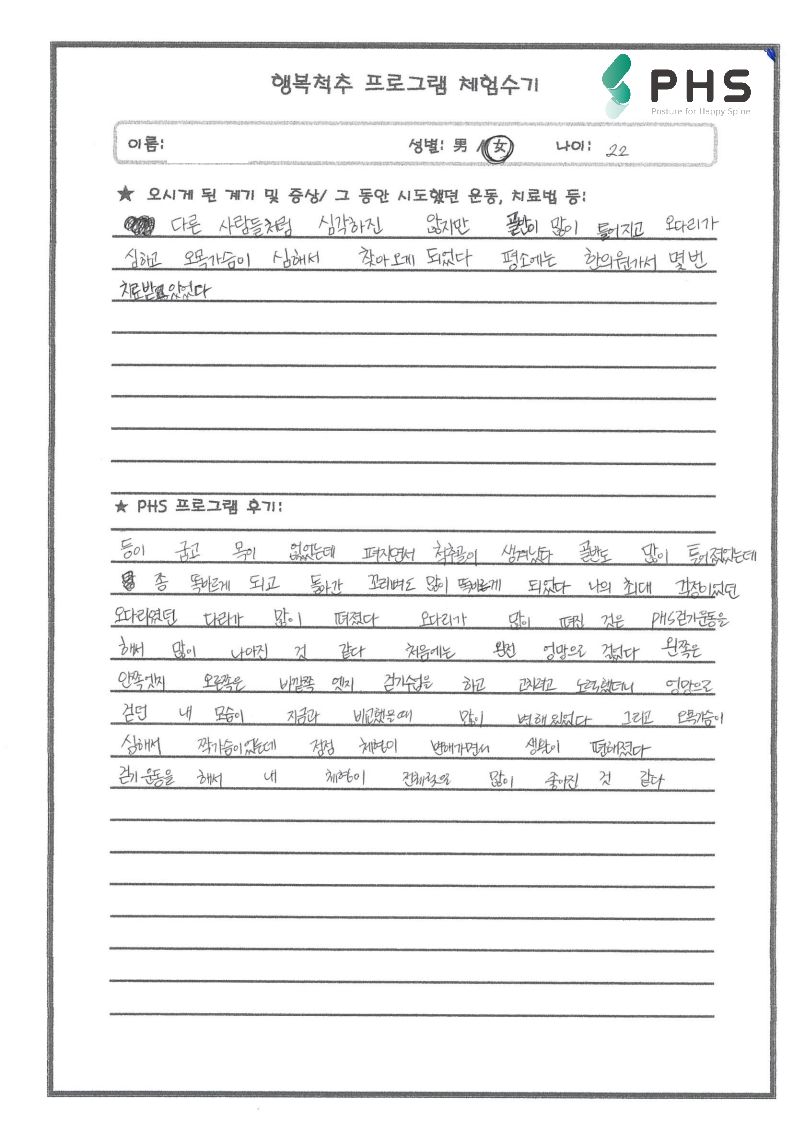 행복척추 프로그램 체험수기
PHS
Posture for Happy Spine
이름:
성별: 男 / 女 나이: 22
★ 오시게 된 계기 및 증상/ 그 동안 시도했던 운동, 치료법 등:
다른 사람들처럼 심각하진 않지만 골반이 많이 틀어지고 오다리가
심하고 오목가슴이 심해서 찾아오게 되었다 평소에는 한의원가서 몇번
치료받고있었다
★ PHS 프로그램 후기:
등이 굽고 목이 없었는데 펴지면서 척추골이 생겨났다 골반도 많이 틀어졌었는데
좀 똑바르게 되고 돌아간 꼬리뼈도 많이 똑바르게 되었다 나의 최대 걱정이었던
오다리였던 다리가 많이 펴졌다 오다리가 많이 펴진 것은 PHS걷기운동을
해서 많이 나아진 것 같다 처음에는 완전 엉망으로 걸었다 왼쪽은
안쪽엣지 오른쪽은 바깥쪽 엣지 걷기수업을 하고 고치려고 노력했더니 엉망으로
걷던 내 모습이 지금과 비교했을때 많이 변해있었다 그리고 오목가슴이
심해서 짝가슴이었는데 점점 체형이 변해가면서 생활이 편해졌다
걷기운동을 해서 내 체형이 전체적으로 많이 좋아진 것 같다